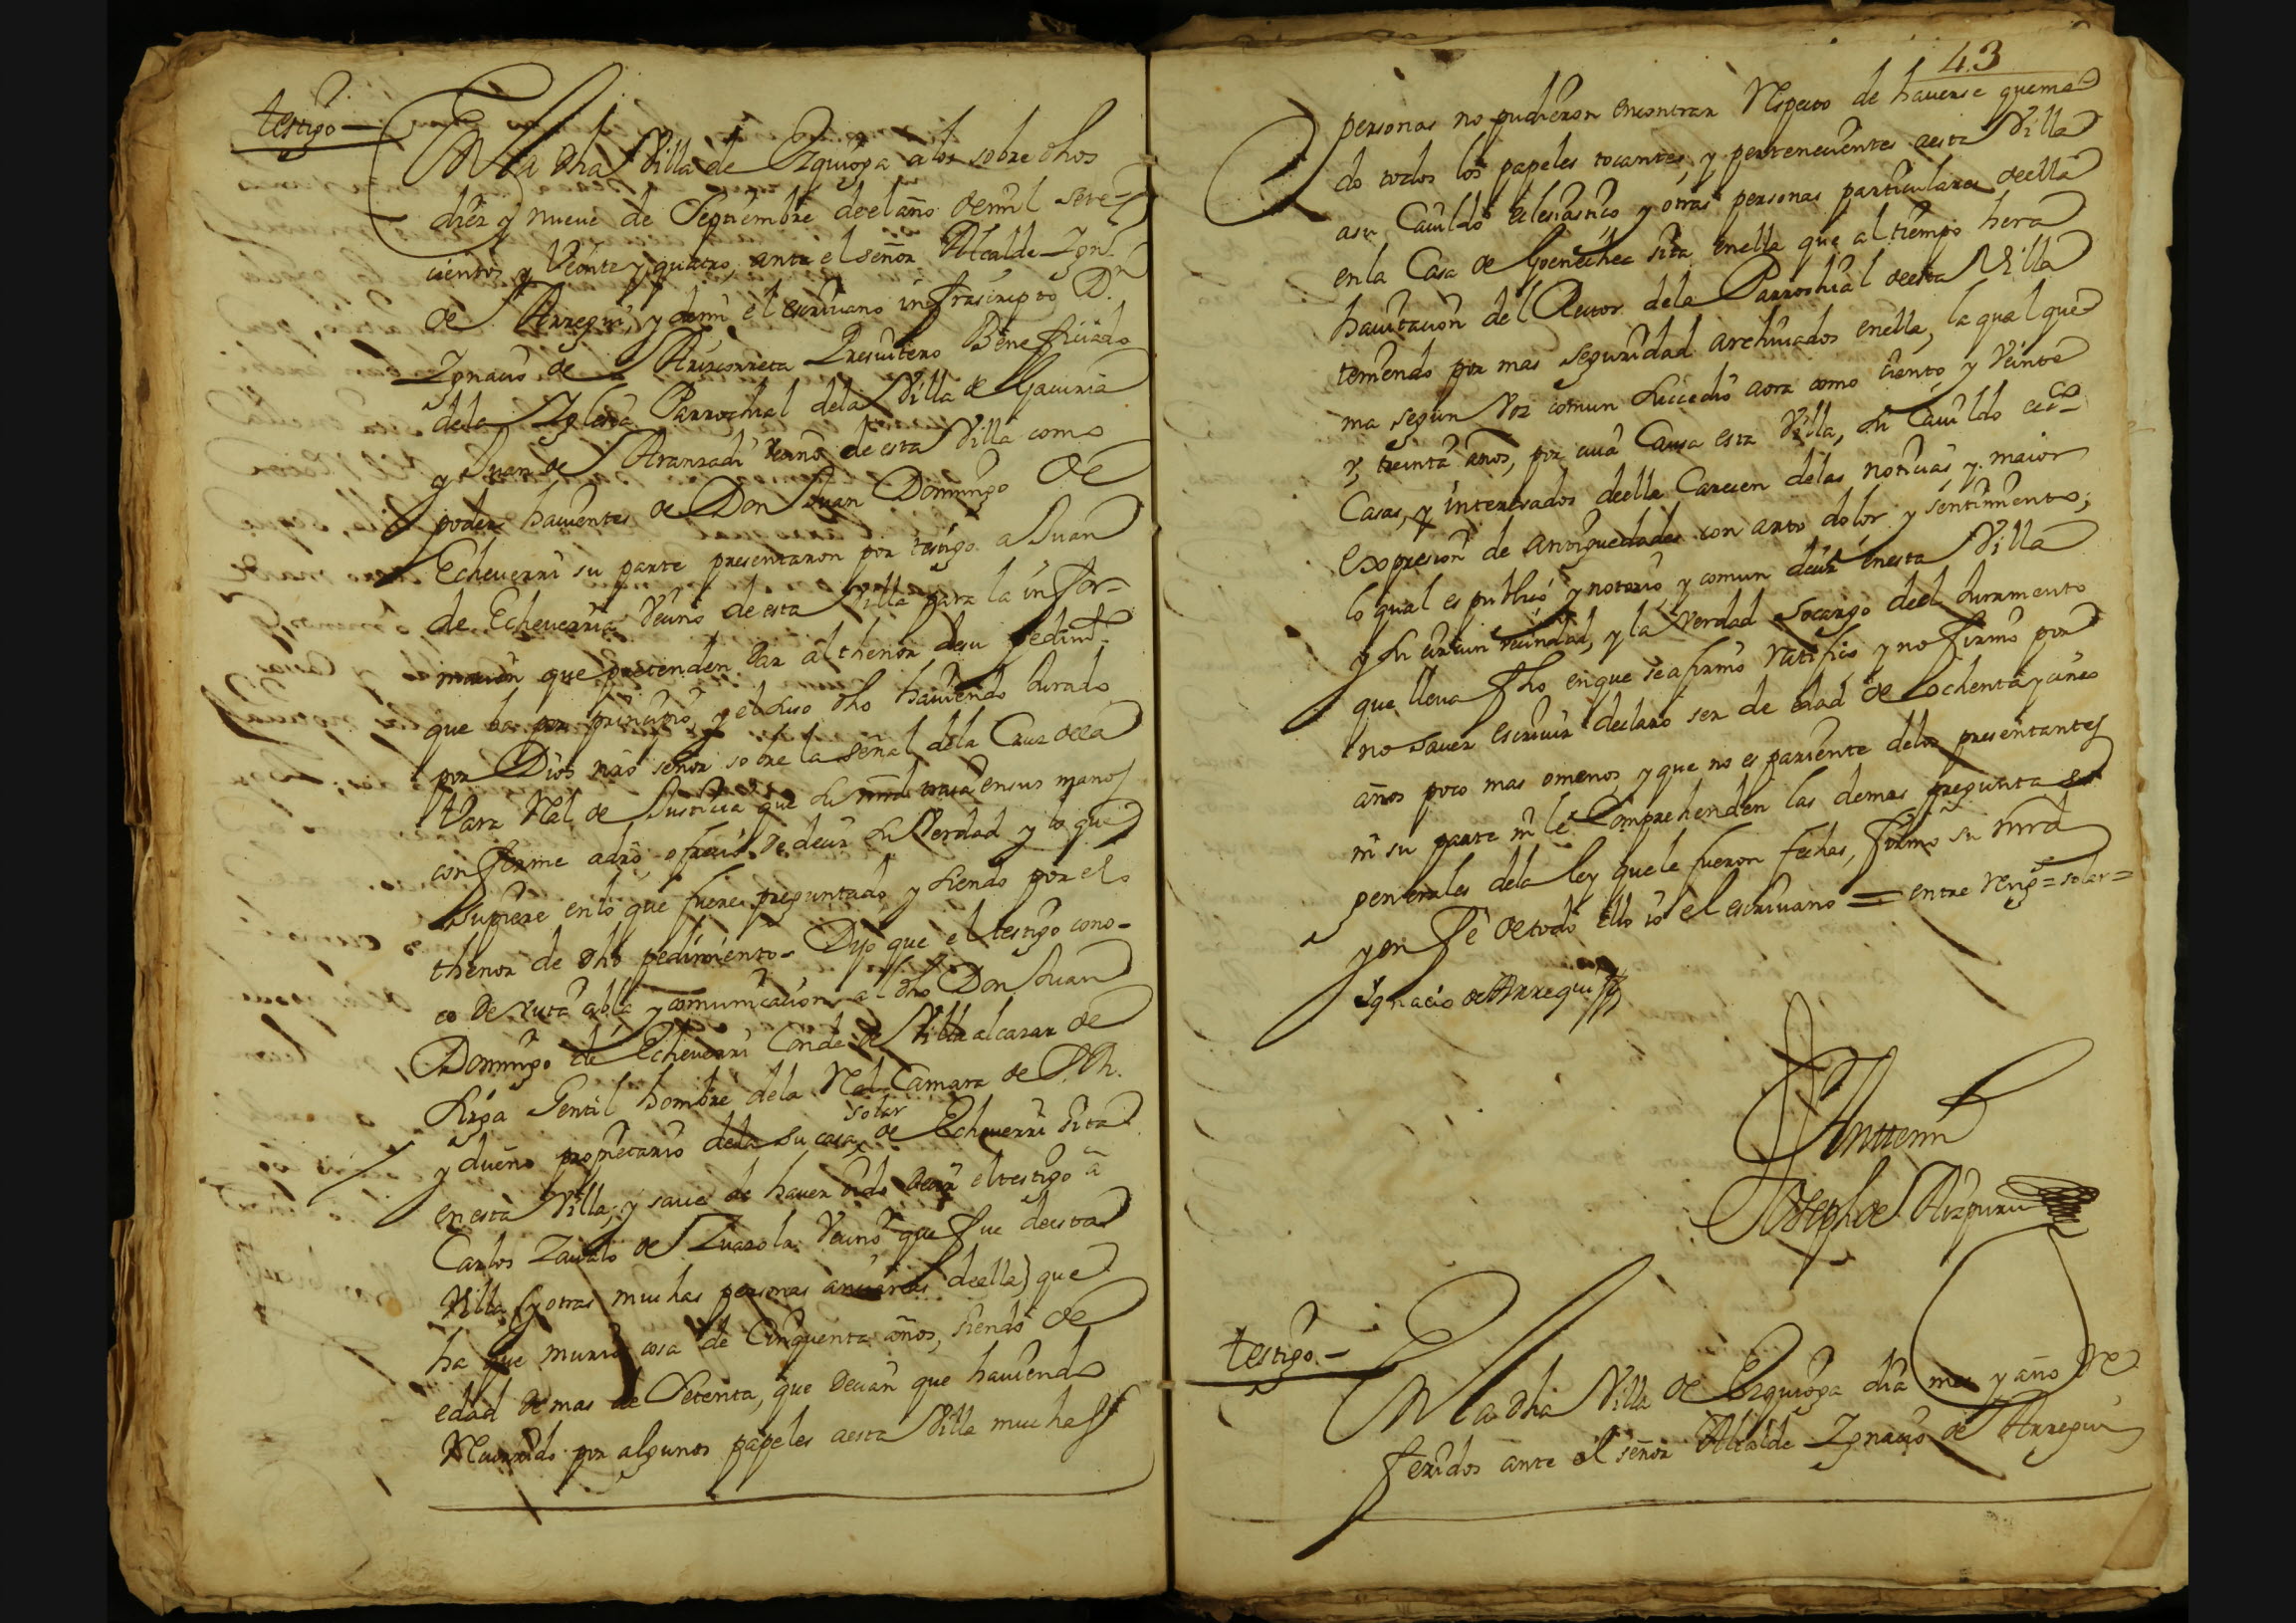 testigo
En la dha Villa de Ezquioga a los sobre dhos
diez y nueve de Septiembre deel año de mil sete-
cientos y Veinte y quatro, ante el señor Alcalde Ign.º
de Arregui, y de mi el escriuano infrascripto D.n
Ignacio de Arizcorreta Presuitero Beneficiado
dela Iglesia Parrochial dela Villa de Gauiria
y Juan de Aranzadi Vecino de esta Villa como
poder hauientes de Don Juan Domingo de
Echeuerri su parte presentaron por testigo a Juan
de Echeuerria Vecino de esta Villa para la infor-
macion que pretenden dar al thenor de su pedim.to
que ba por principio, y el suso dho hauiendo Jurado
por Dios nro señor sobre la señal dela Cruz dela
Vara Rl. de Justicia que su mrd traia en sus manos
conforme a dro, ofrecio de decir la Verdad y lo que
supiere en lo que fuere preguntado, y siendo por el
thenor de dho pedimiento- Dijo que el testigo cono-
ce de vista abla y comunicacion a dho Don Juan
Domingo de Echeuerri Conde de Villa alcazar de
Sirga Gentil hombre dela Rl. Camara de S. M.
solar
y dueño propietario dela su casa de Echeuerri sita
en esta Villa, y saue de hauer oido decir el testigo â
Carlos Zaualo de Zuazola Vecino que fue de esta
Villa (y otras muchas personas ancianas deella) que
ha que murio cosa de Cinquenta años, siendo de
edad de mas de Setenta, que decian que hauiendo
Recurrido por algunos papeles a esta Villa muchas
43
personas no pudieron encontrar Respecto de hauerse quema
do todos los papeles tocantes, y pertenecientes a esta Villa
a su Cauildo eclesiastico y otras personas particulares deella
en la Casa de Goenechea sita en ella que al tiempo hera
hauitacion del Rector dela Parrochial deesta Villa
teniendo por mas seguridad archiuados en ella, la qual que
ma segun Voz comun succedio aora como ciento y Veinte
y, treinta años, por cuia Causa esta Villa, su Cauildo ecc.co
Casas, y interesados deella Carecen delas noticias y maior
expresion de antiguedades con arto dolor y sentimiento;
lo qual es publico y notorio y comun decir en esta Villa
y su circun vecindad, y la Verdad Socargo deel Juramento
que lleua fho en que se afirmo Ratifico y no firmo por
no sauer escriuir declaro ser de edad de ochenta y cinco
años poco mas o menos, y que no es pariente delos presentantes
ni su parte ni le Comprehenden las demas preguntas
generales dela ley que le fueron fechas, firmo su mrd
y en fe de todo ello io el escriuano = entre Reng.s = solar =
Ignacio de Arregui
Ante mi
Joseph de Aizpuru
testigo-
En la dha Villa de Ezquioga dia mes y año Re
feridos ante el señor Alcalde Ignacio de Arregui